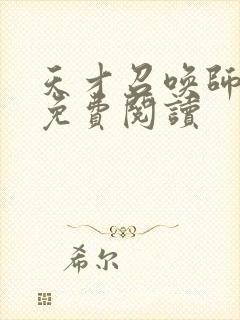 天才召喚師
免費閱讀
希尔